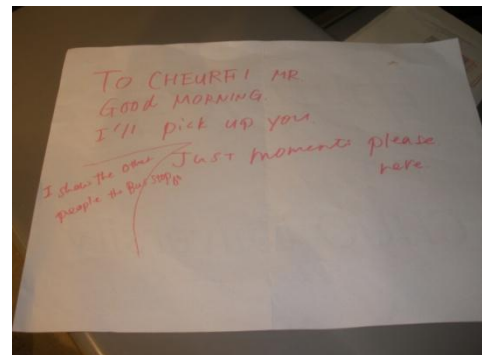 TO CHEURFI MR
GOOD MORNING.
I'll pick up you.
Just moments please
here.
I show the other
people the Bus Stop